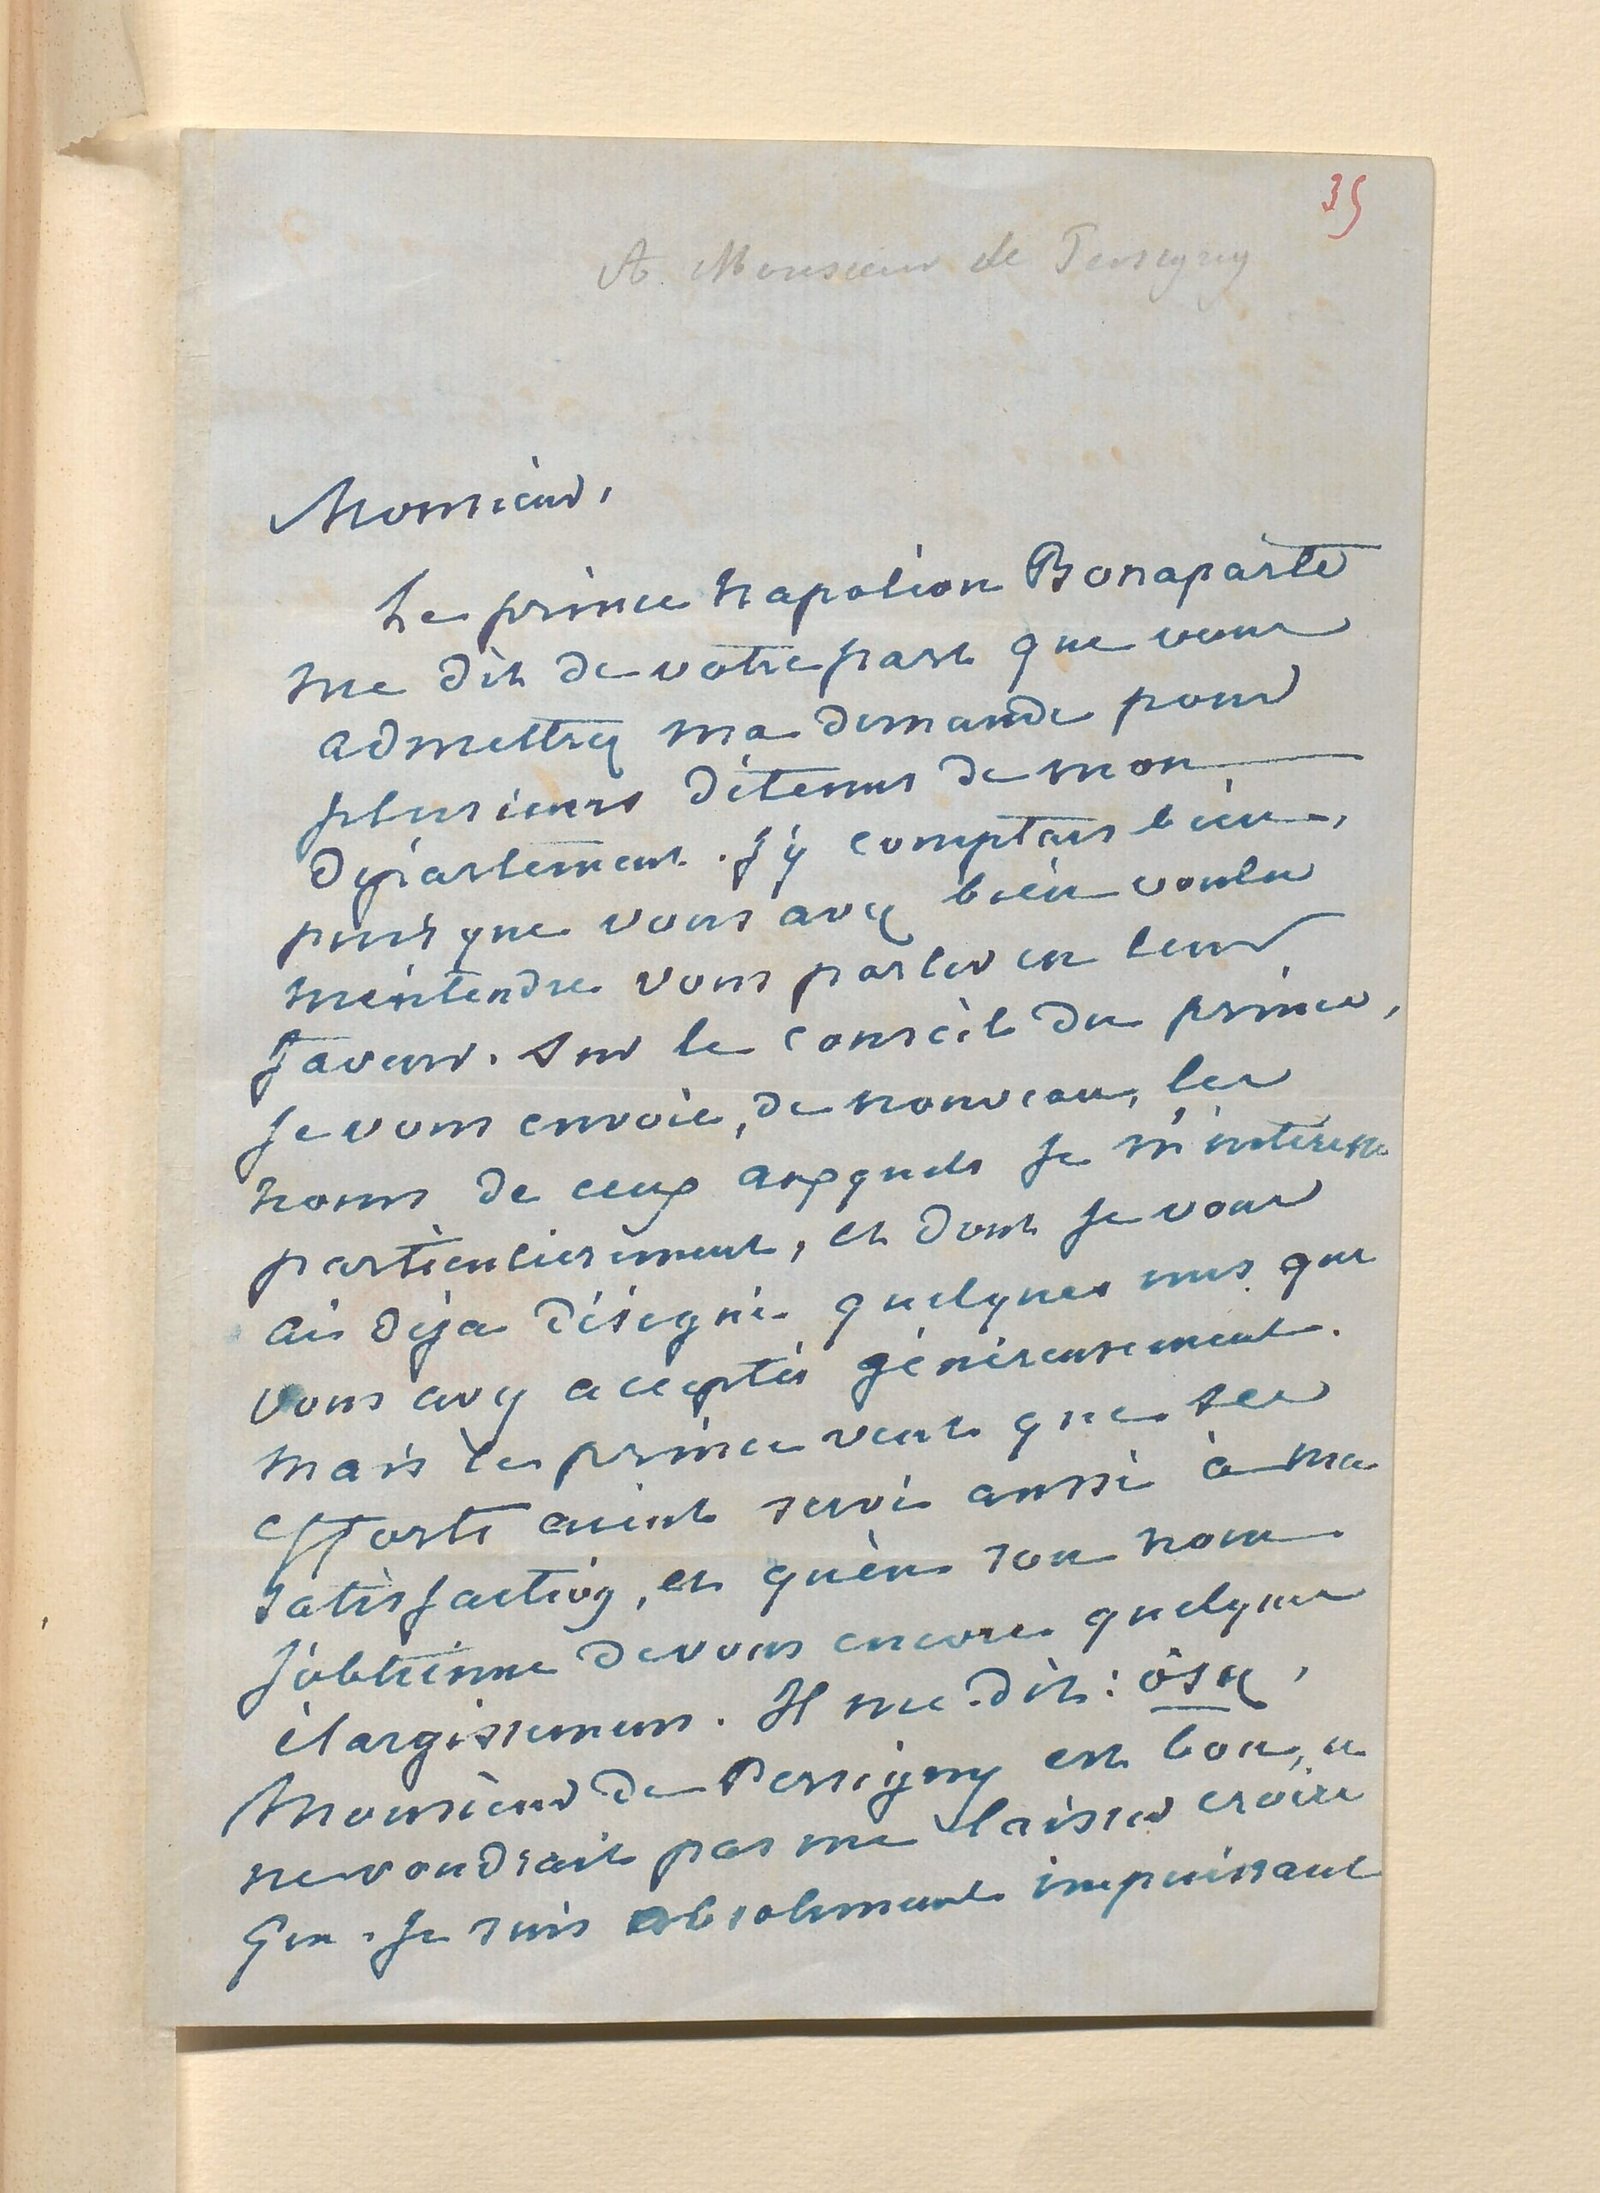 35
A Monsieur de Persigny
Monsieur,
Le prince Napoléon Bonaparte
me dit de votre part que vous
admettrez ma demande pour
plusieurs détenus de mon
département. J'y comptais bien,
puis que vous avez bien voulu
m'entendre vous parler en leur
faveur. Sur le conseil du prince,
Je vous envoie, de nouveau, les
noms de ceux auxquels je m'intéresse
particulièrement, et dont je vous
ai déja désigné quelques uns que
vous avez acceptés généreusement.
Mais le prince veut que ses
efforts aient servi aussi à ma
satisfaction, et qu'en son nom
J'obtienne de vous encore quelques
élargissemens. Il me dit : osez,
Monsieur de Persigny est bon, et
ne voudrait pas me laisser croire
que je suis absolument impuissant